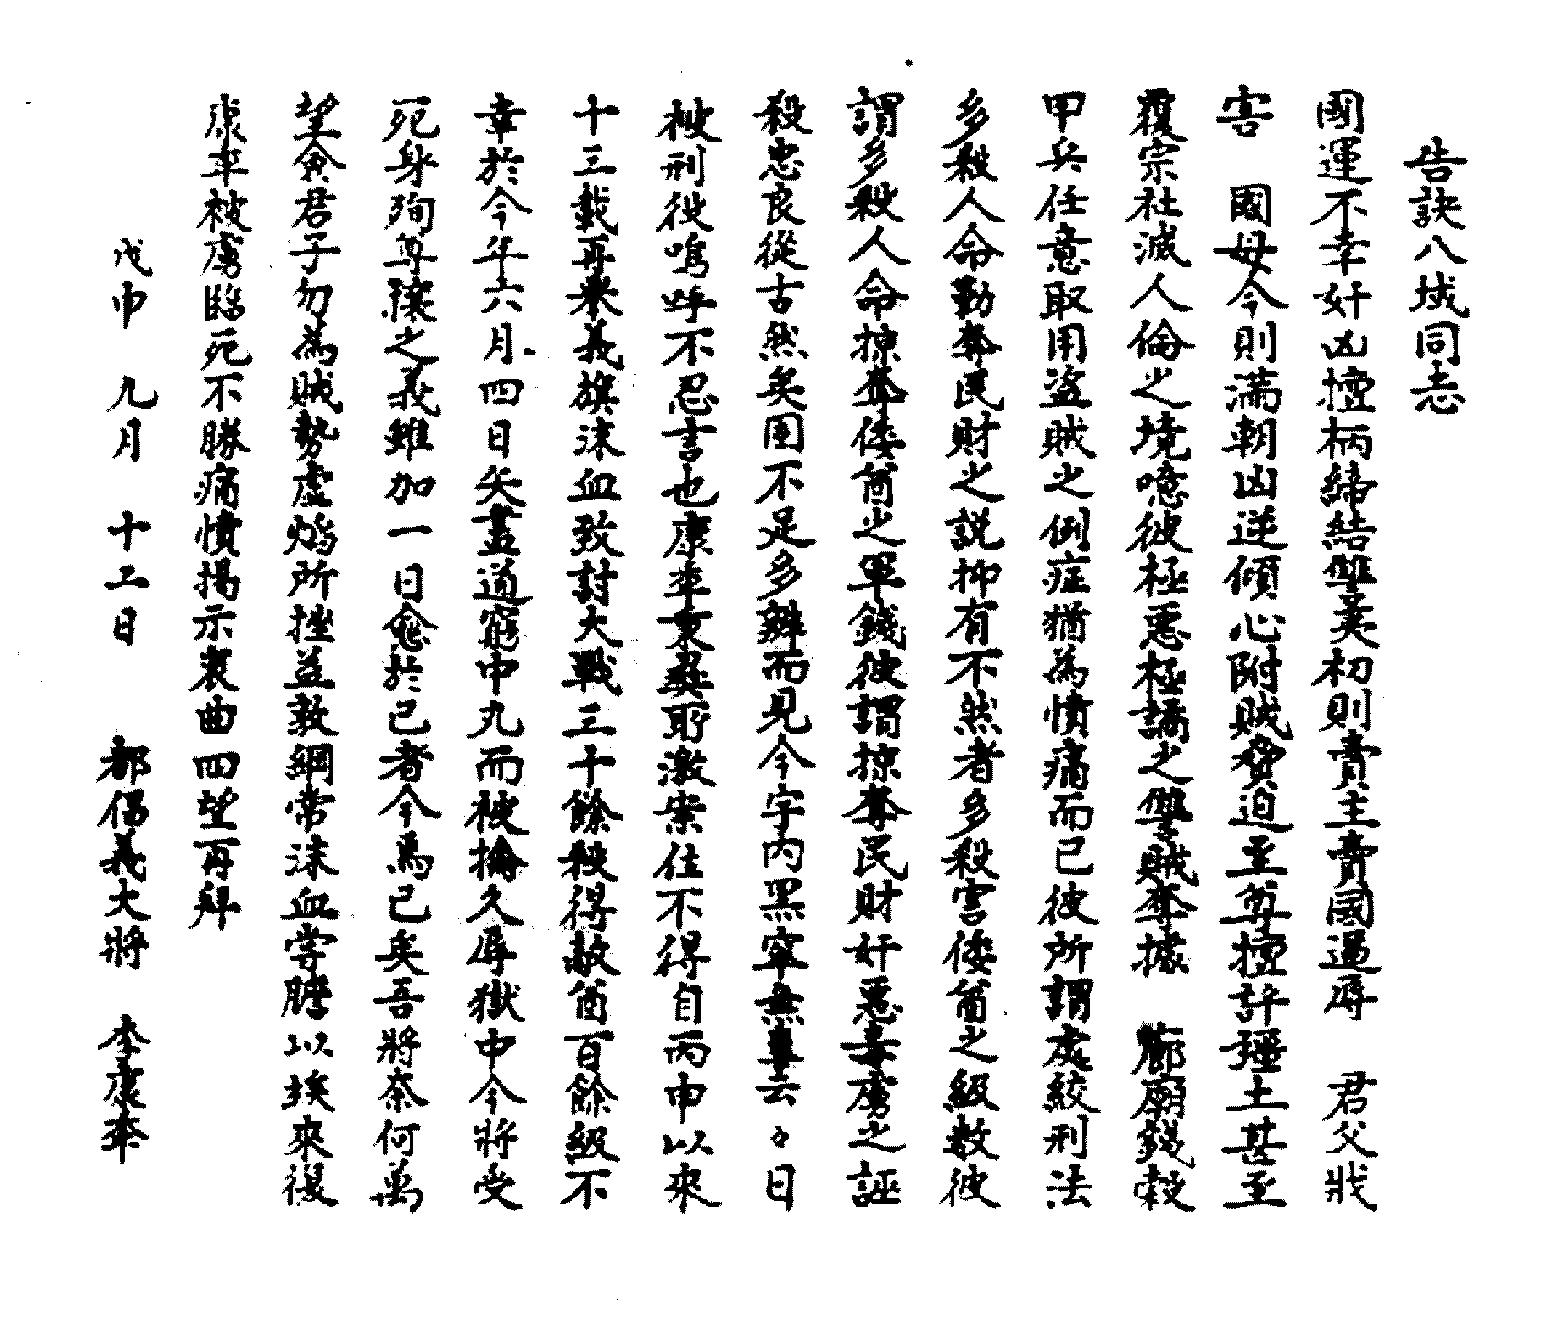 告訣八域同志
國運不幸奸凶擅柄締結讐夷初則賣主賣國逼辱　君父戕
害　國母今則滿朝凶逆傾心附賊脅迫至尊擅許疆土甚至
覆宗社滅人倫之境噫彼極惡極譎之讐賊奪據　廊廟錢穀
甲兵任意取用盜賊之倒症猶為憤痛而已彼所謂處絞刑法
多殺人命勤奪民財之説抑有不然者多殺害倭酋之級數彼
謂多殺人命掠奪倭酋之軍錢彼謂掠奪民財奸惡毒虜之誣
殺忠良從古然矣固不足多辨而見今宇內黑窣無辜云々日
被刑役嗚呼不忍言也康秊秉彛所激崇住不得自丙申以來
十三載再擧義旗沫血致討大戰三十餘殺得敵酋百餘級不
幸於今年六月四日矢盡道窮中丸而被擒久辱獄中今將受
死身殉尊攘之義雖加一日愈於已者今焉已矣吾將奈何萬
望僉君子勿為賊勢虛焰所挫益敦綱常沫血嘗膽以竢來復
康秊被虜臨死不勝痛憤揭示衷曲四望再拜
戊申　九月　十二日　都倡義大將　李康秊